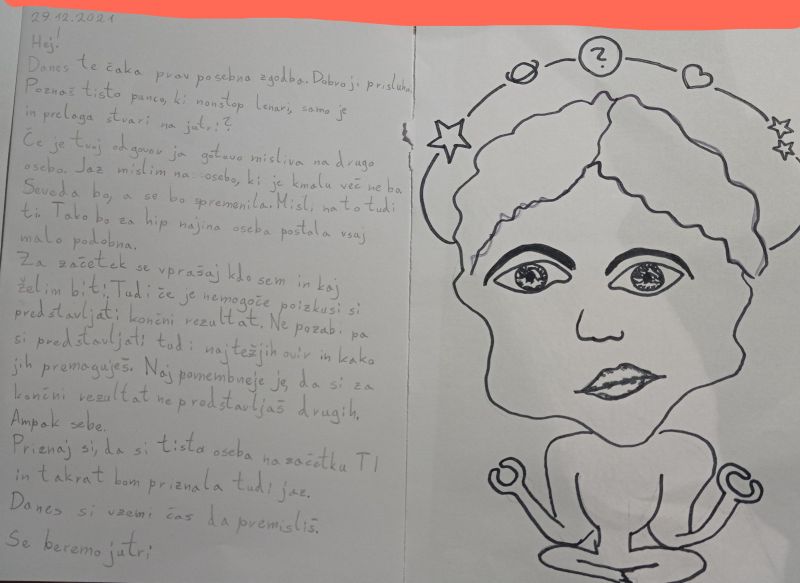 29.12.2021
Hej!
Danes te čaka prav posebna zgodba. Dobro ji prisluhni.
Poznaš tisto punco, ki nonstop lenari, samo je
in prelaga stvari na jutri?
Če je tvoj odgovor ja gotovo misliva na drugo
osebo. Jaz mislim na osebo, ki je kmalu več ne bo
Seveda bo, a se bo spremenila. Misli na to tudi
ti. Tako bo za hip najina oseba postala vsaj
malo podobna.
Za začetek se vprašaj kdo sem in kaj
želim biti. Tudi če je nemogoče poizkusi si
predstavljati končni rezultat. Ne pozabi pa
si predstavljati tudi najtežjih ovir in kako
jih premaguješ. Naj pomembneje je, da si za
končni rezultat ne predstavljaš drugih.
Ampak sebe.
Priznaj si, da si tista oseba na začetku TI
in takrat bom priznala tudi jaz.
Danes si vzemi čas da premisliš.
Se beremo jutri
?